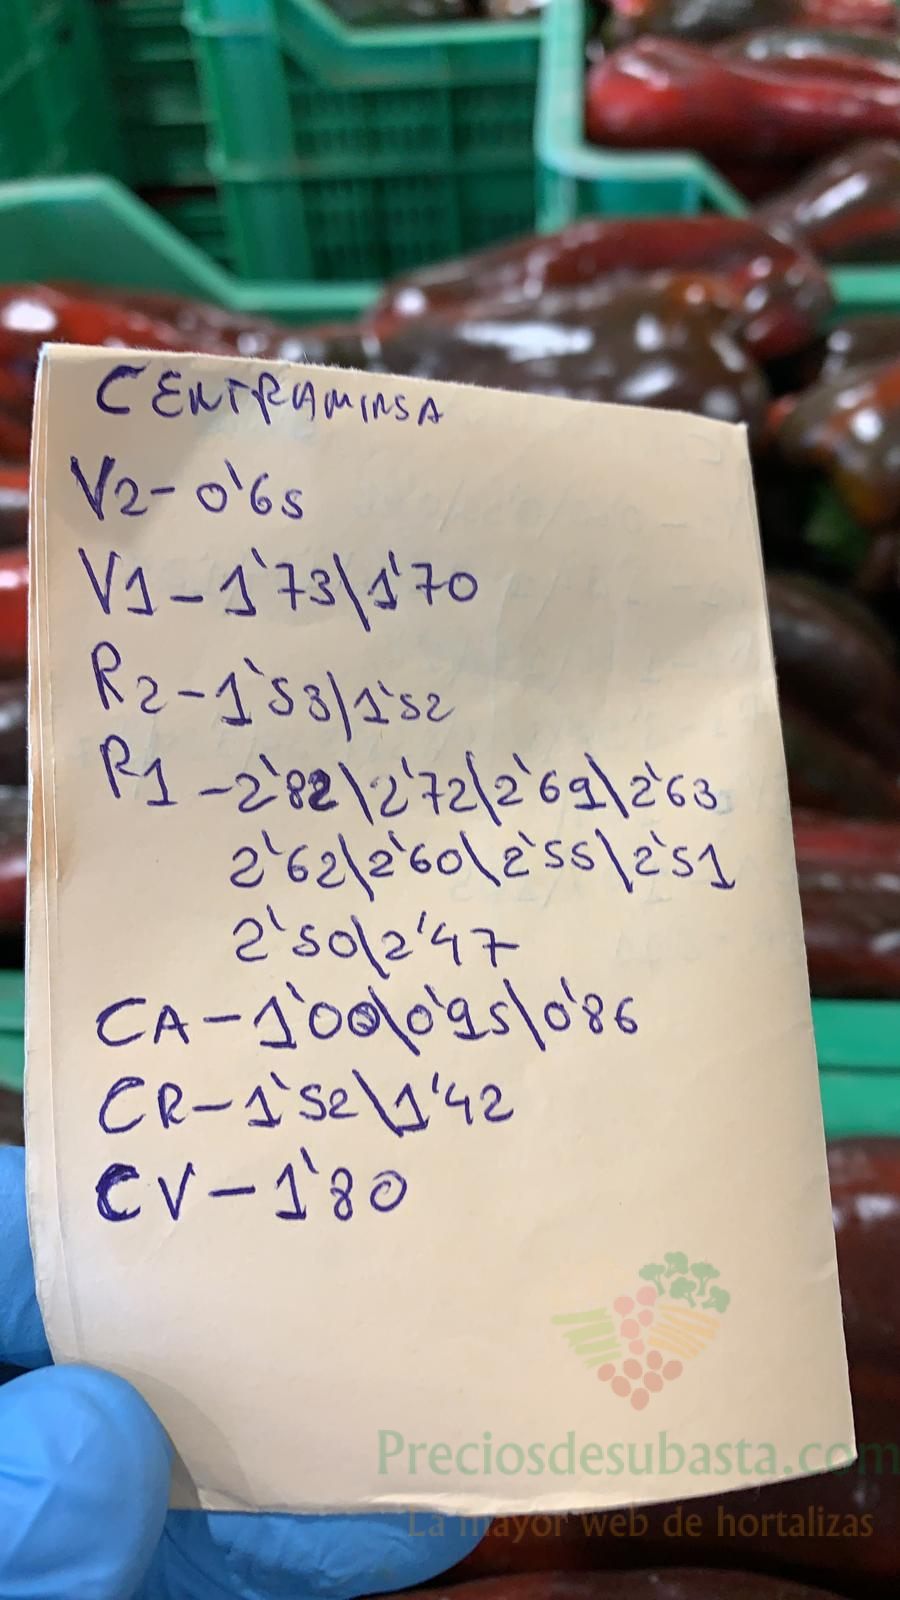 CENTRAMIRSA
V2- 0'65
V1 - 1'73\1'70
R2 - 1'53/1'52
R1 - 2'82\2'72\2'69\2'63
2'62\2'60\2'55\2'51
2'50\2'47
CA - 1'00\0'95\0'86
CR - 1'52\1'42
CV - 1'80
Preciosdesubasta.com
La mayor web de hortalizas